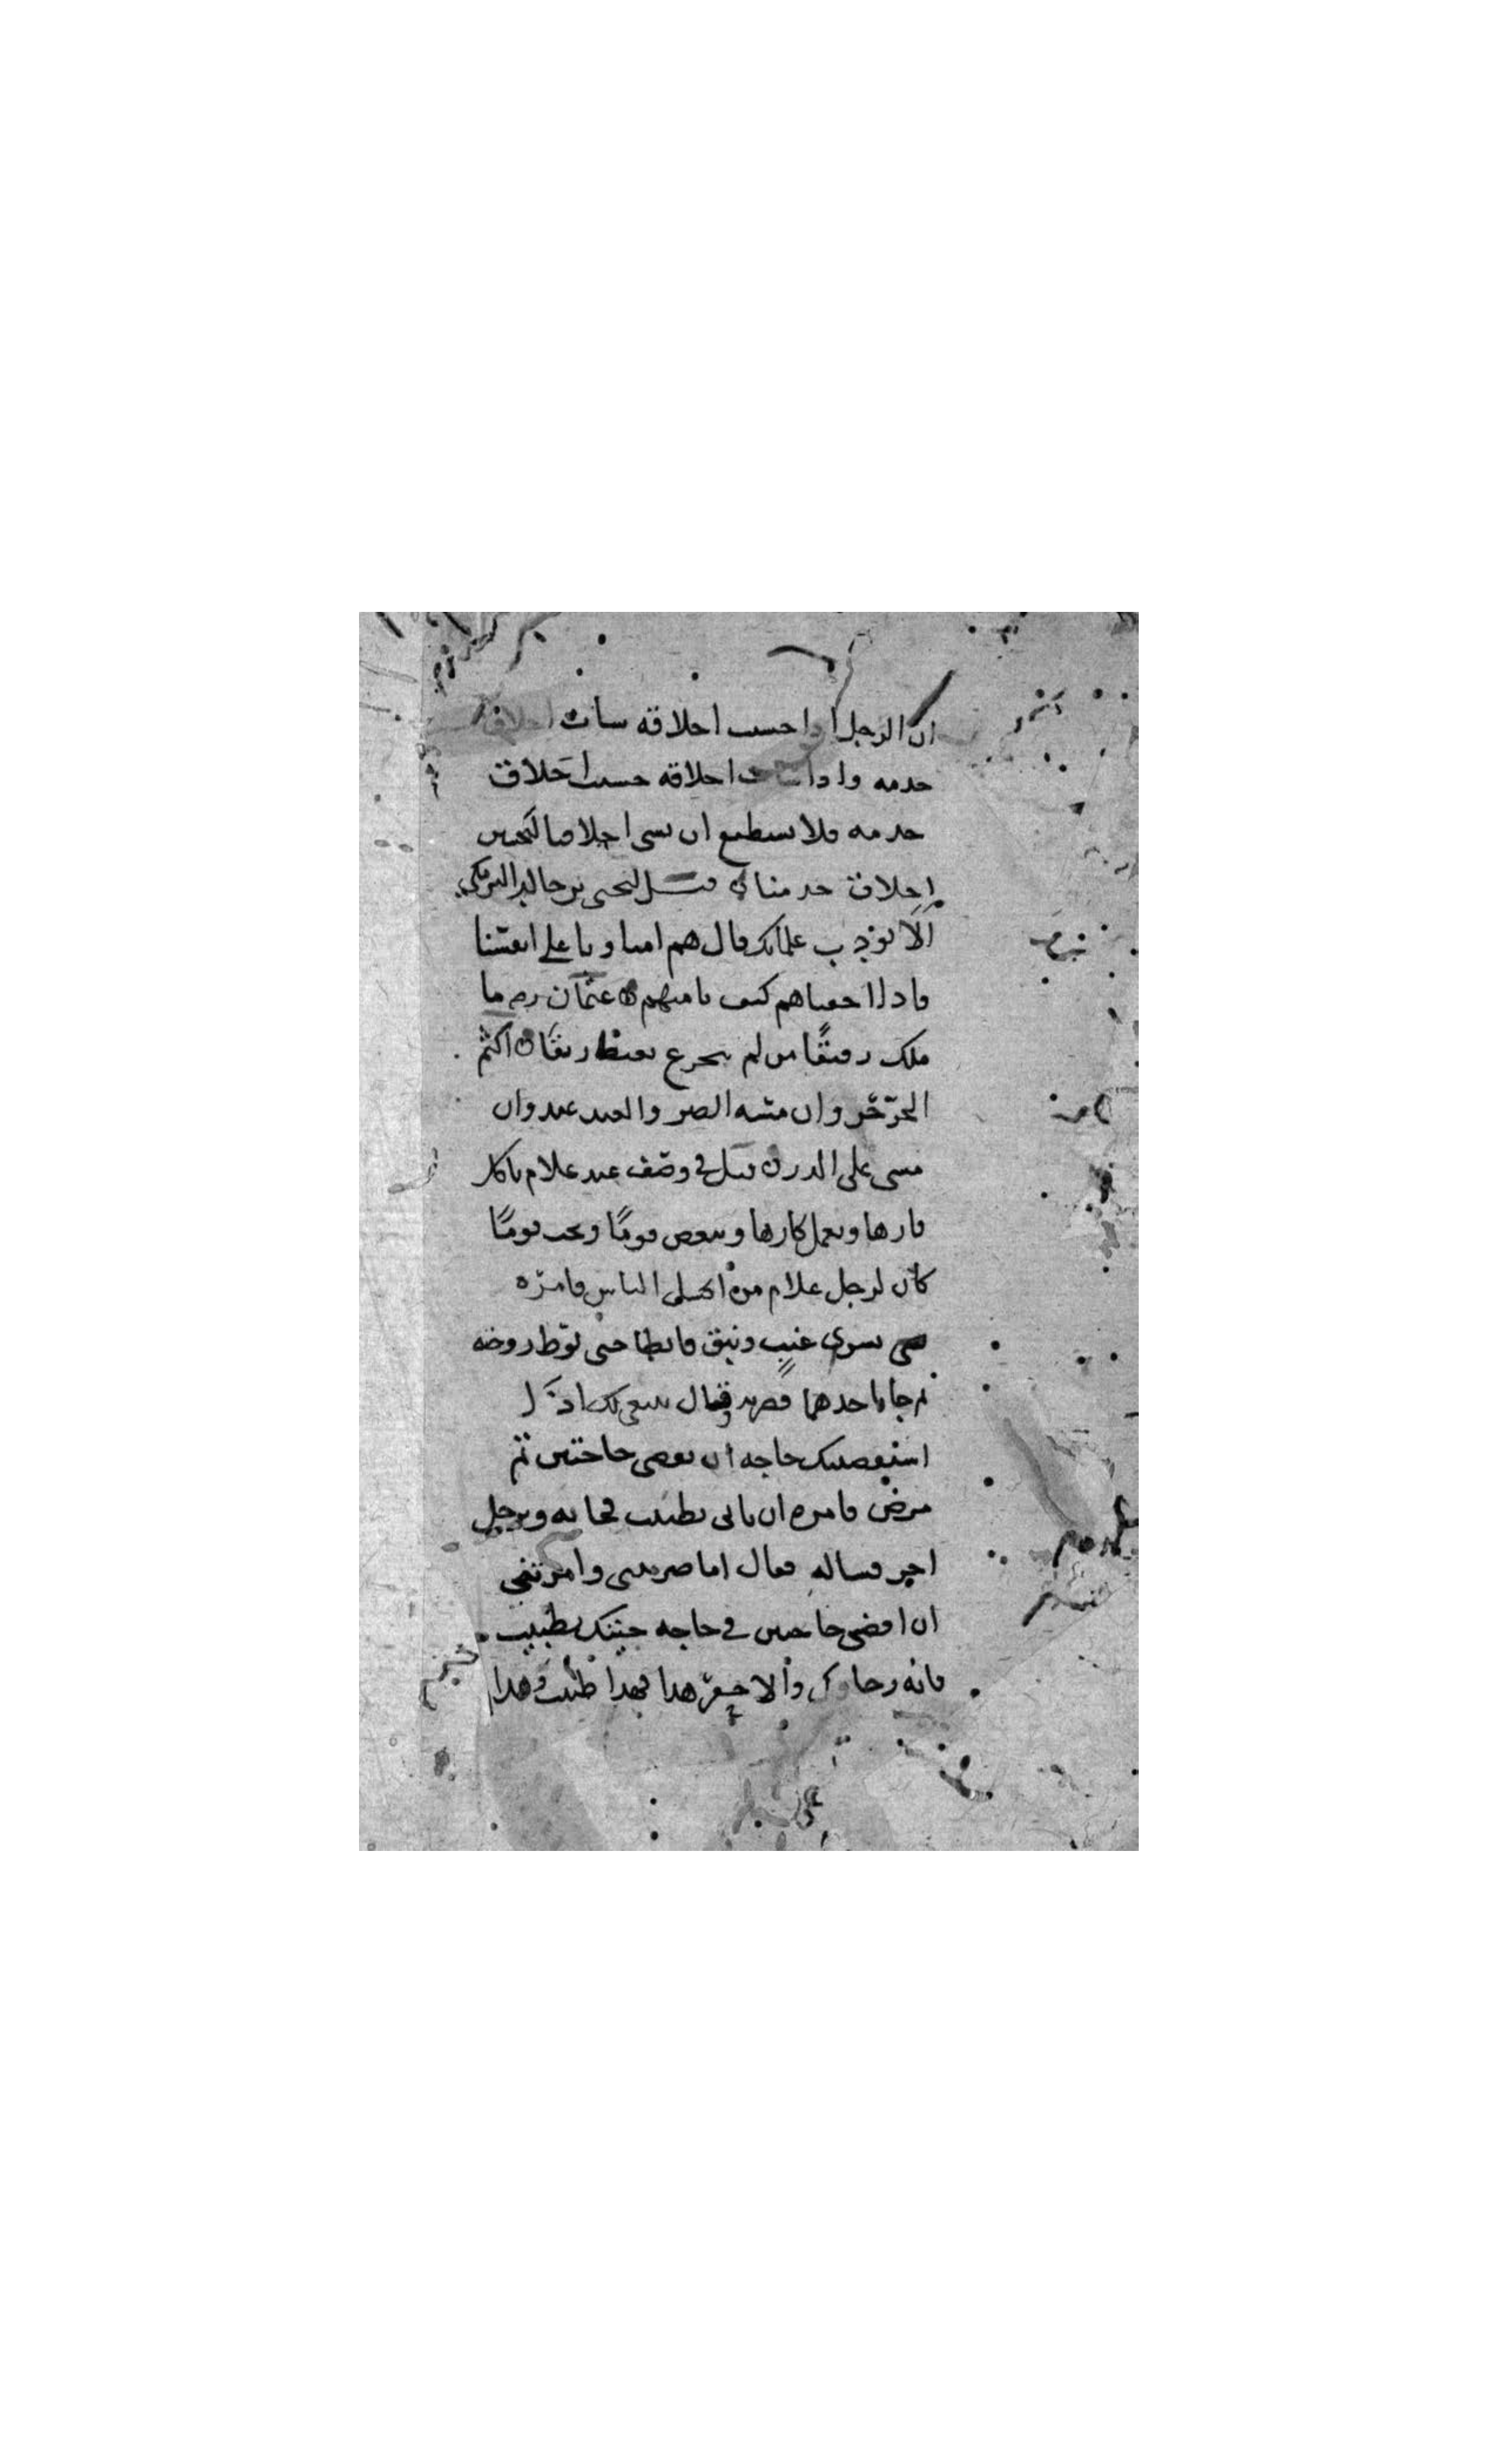 ان الرجل اذا حسنت اخلاقه سات اخلاق
خدمه واذا سات اخلاقه حسنت اخلاق
خدمه فلا نستطيع ان نسي اخلاقنا لتحسن
اخلاق خدمنا قيل ليحيى بن خالد البرمكي
الا تودب غلمانك قال هم امناونا على انفسنا
فاذا اخفناهم كيف نامنهم عثمان رض ما
ملك رقيقا من لم يتجرع بغيظ ريقا اكثم
الحر حر وان مسه الضر والعبد عبد وان
مشى على الدر قيل في وصف عبد غلام ياكل
فارها ويعمل كارها ويبغض قوما ويحب نوما
كان لرجل غلام من اكسل الناس فامره
بشرى عنب وتين فابطا حتى نوط روحه
ثم جا باحدهما فضربه وقال ينبغي لك اذا
استقضيتك حاجه ان تقضي حاجتين ثم
مرض فامره ان ياتي بطبيب فجا به وبرجل
اخر فساله فقال اما ضربتني وامرتني
ان اقضي حاجتين في حاجه جيتك بطبيب
فانه رجاوك والا حفر هذا فهذا طبيب وهذا